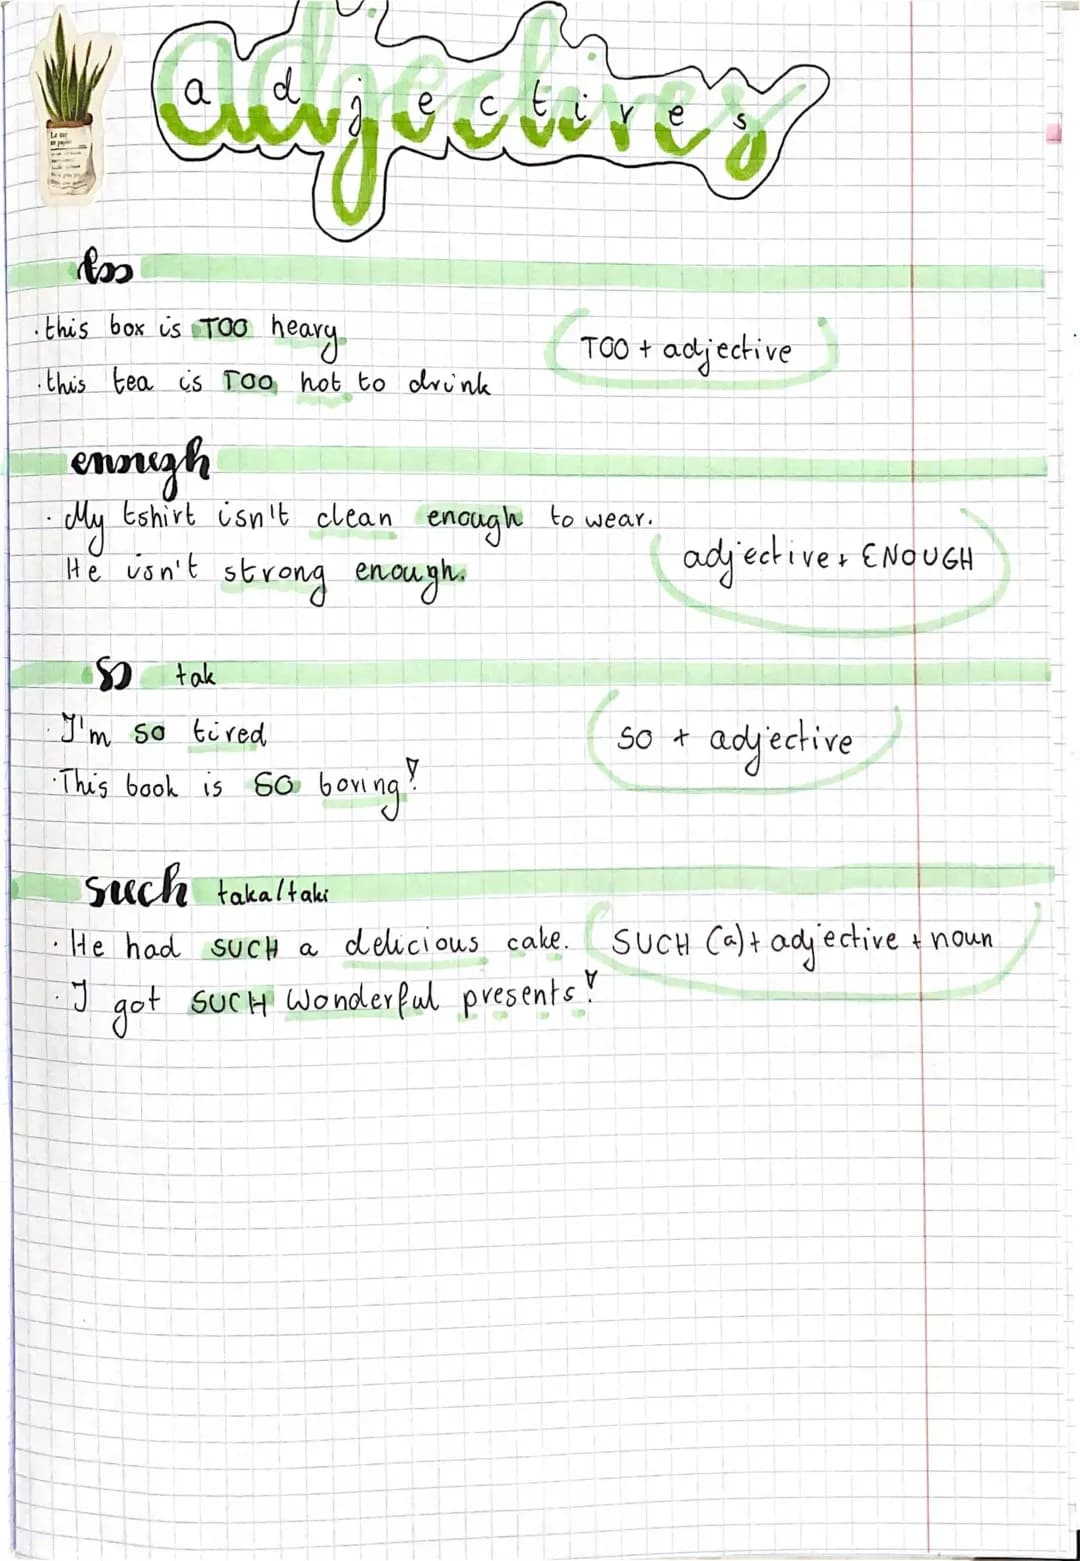 adjectives
adjectives
too
· this box is TOO heavy.
TOO + adjective
· this tea is TOO hot to drink
enough
· My tshirt isn't clean enough to wear.
adjective + ENOUGH
He isn't strong enough.
so tak
· I'm so tired
SO + adjective
· This book is SO boring!
such taka/taki
· He had SUCH a delicious cake.
SUCH (a) + adjective + noun
· I got SUCH wonderful presents!